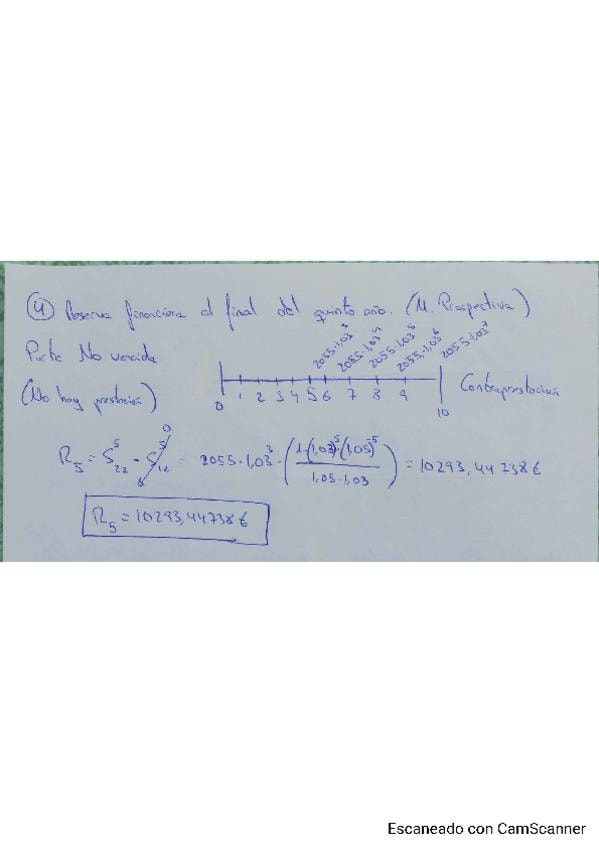 ④ Reserva financiera al final del quinto año. (M. Prospectiva)
Parte No vencida
(No hay prestación)
2055·1,03³ 2055·1,03⁴ 2055·1,03⁵ 2055·1,03⁶ 2055·1,03⁷
0 1 2 3 4 5 6 7 8 9 10 Contraprestación
R₅ = S⁵₂₂ - S⁵₁₂ 0 = 2055·1,03³ · (1-(1,03)⁵·(1,05)⁻⁵ / 1,05-1,03) = 10293,44738€
R₅ = 10293,44738€
Escaneado con CamScanner